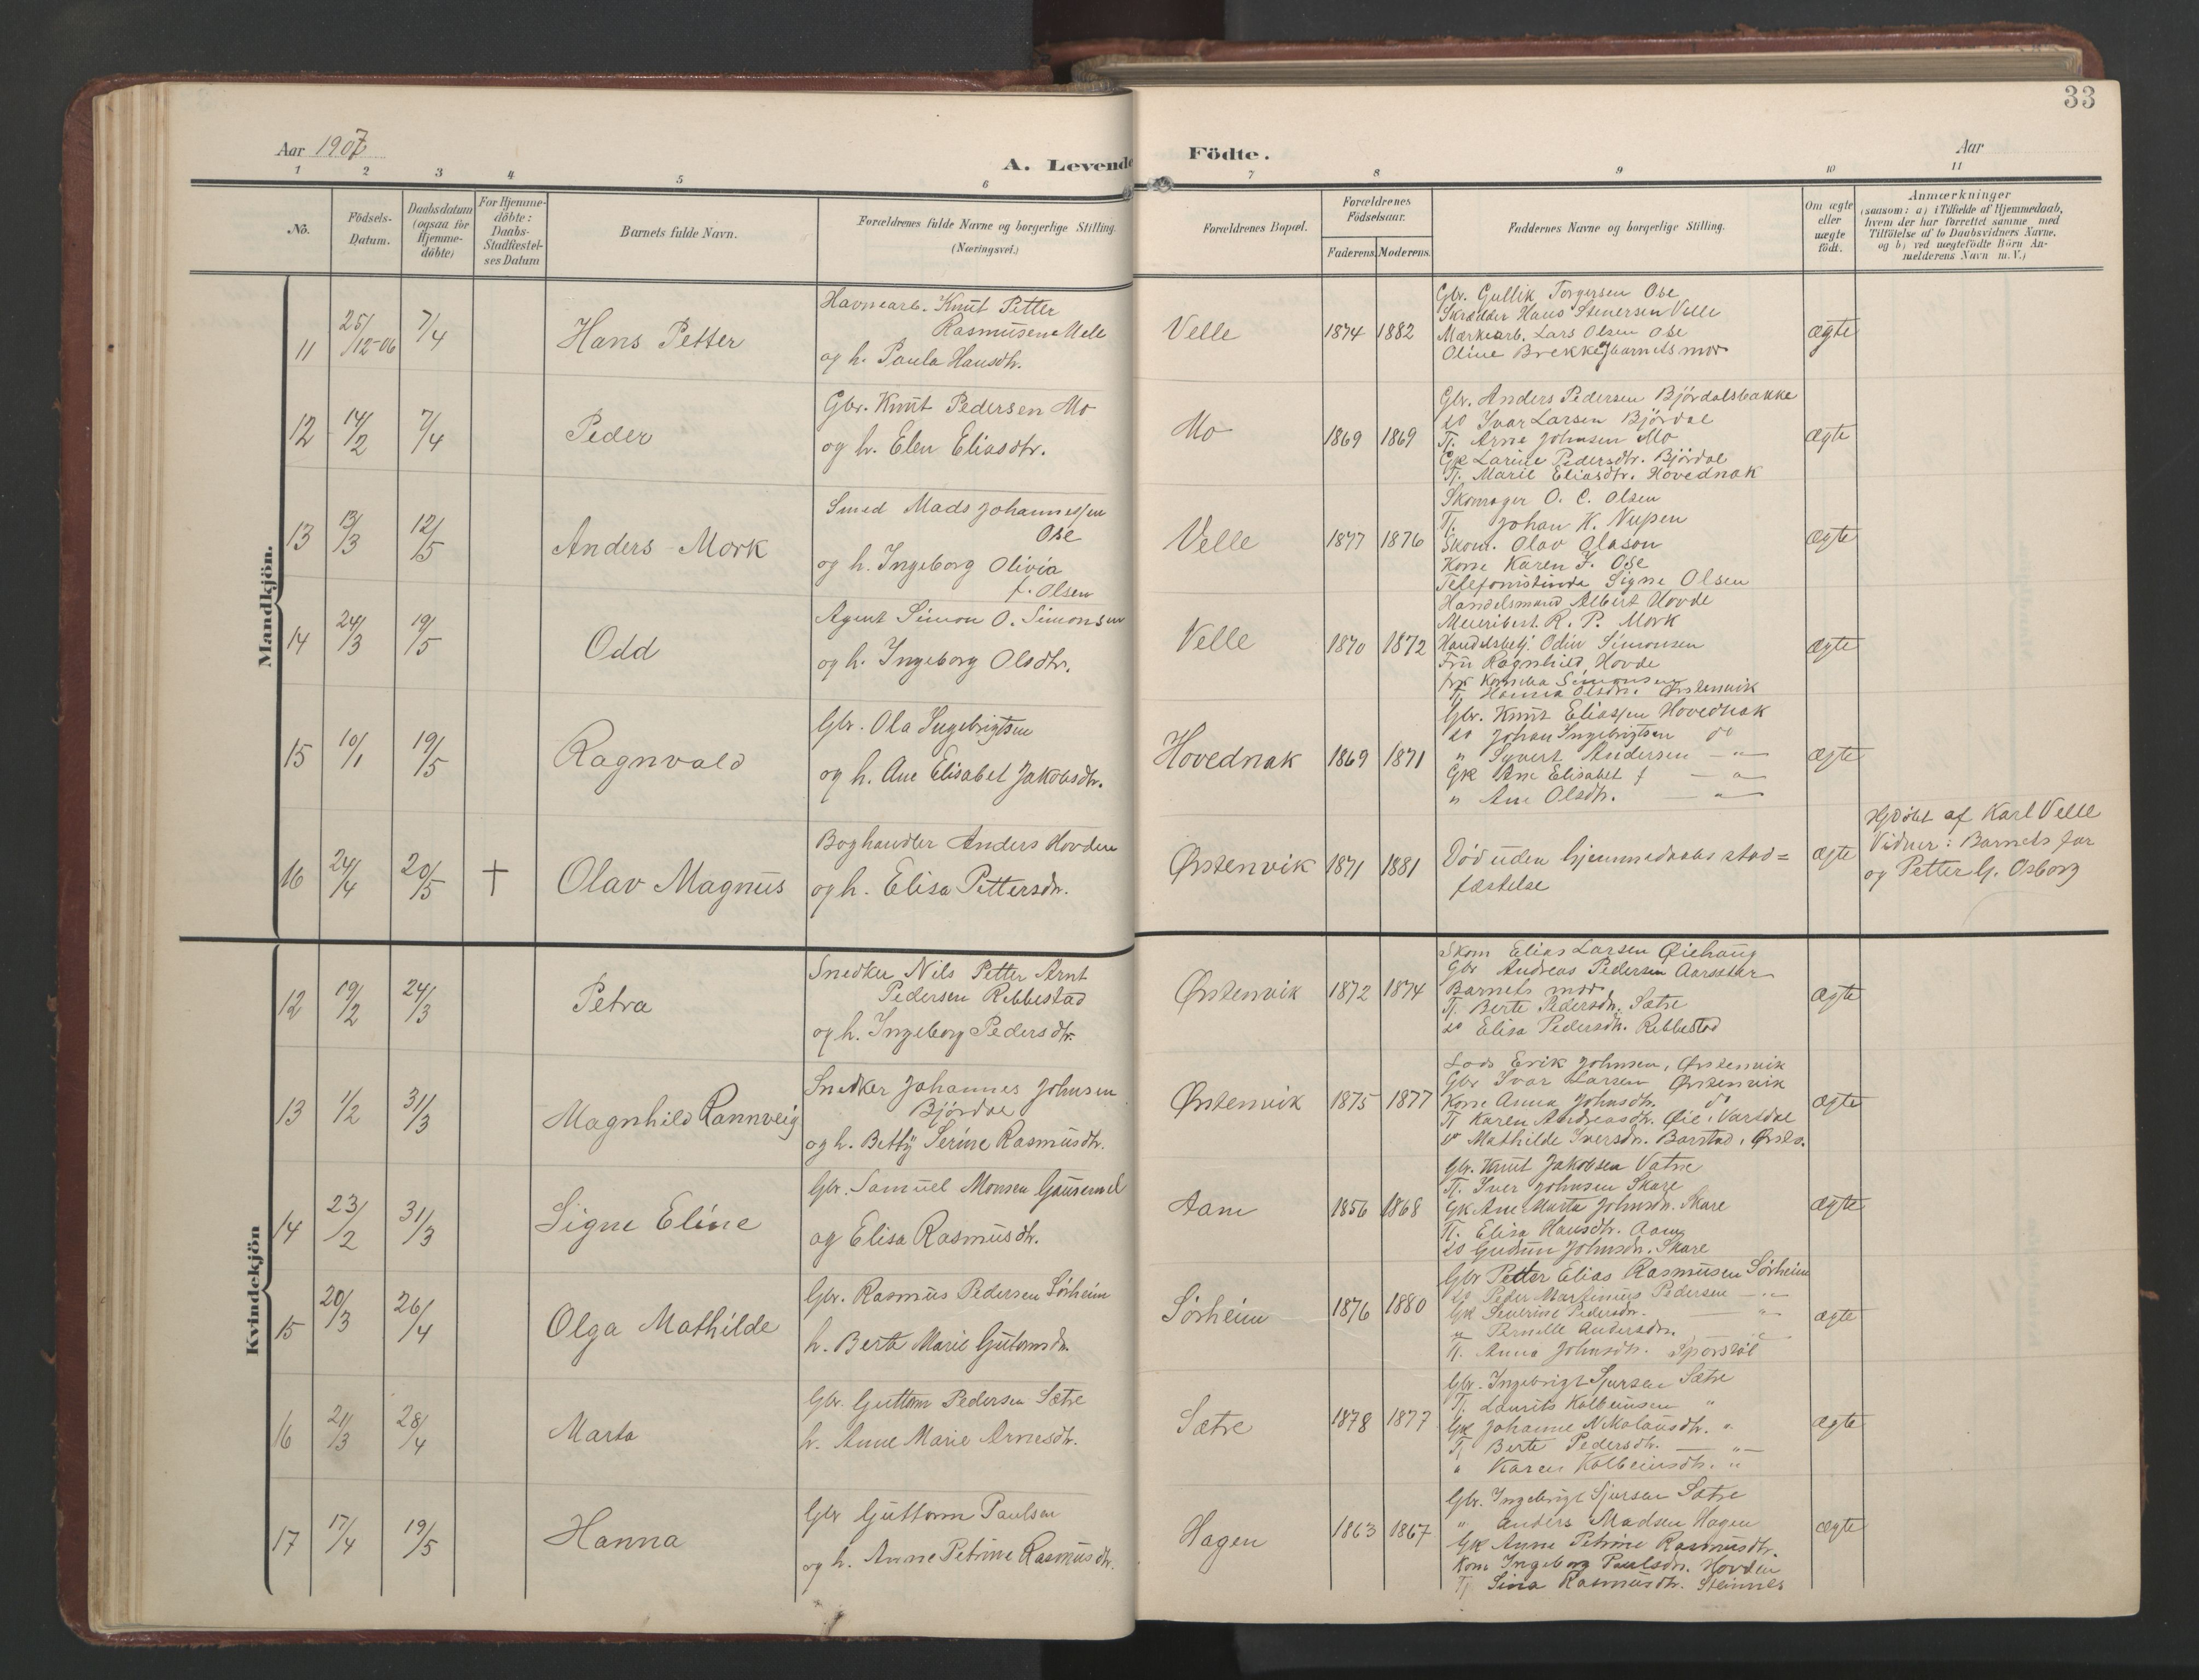 33
Aar 1907
A. Levende Födte.
Aar
1 2 3 4 5 6 7 8 9 10 11
No.
Födsels-Datum.
Daabsdatum (ogsaa for Hjemme-döbte)
For Hjemme-döbte: Daabs-Stadfæstel-ses Datum
Barnets fulde Navn.
Forældrenes fulde Navne og borgerlige Stilling.
(Næringsvei.)
Forældrenes Bopæl.
Forældrenes Födselsaar.
Faderens. Moderens.
Faddernes Navne og borgerlige Stilling.
Om ægte eller uægte födt.
Anmærkninger
(saasom: a) i Tilfælde af Hjemmedaab,
hvem der har forrettet samme med
Tilföielse af to Daabsvidners Navne.
og b) ved uægtefödte Börn An-
melderens Navn m. V.)
Mandkjön.
11 25/12-06 7/4 Hans Petter
Havnearb. Knut Petter
Rasmusen Velle
og h. Paula Hansdtr.
Velle 1874 1882
Gbr. Gullik Torgersen Ose
Skrædder Hans Stenersen Velle
Mærkearb. Lars Olsen Ose
Oline Brekke, barnets mor
ægte
12 14/2 7/4 Peder
Gbr. Knut Pedersen Mo
og h. Elen Eliasdtr.
Mo 1869 1869
Gbr. Anders Pedersen Björdalsbakke
do Ivar Larsen Björdal
Tj. Arne Johnsen Mo
Gk Larine Pedersdtr. Björdal
Tj. Marie Eliasdtr. Hovednak
ægte
13 13/3 12/5 Anders Mork
Smed Mads Johannessen
Ose
og h. Ingeborg Olivia
f. Olsen
Velle 1877 1876
Skomager O. C. Olsen
Tj. Johan K. Nupen
Skom. Olav Olason
Kone Karen J. Ose
Telefonistinde Signe Olsen
ægte
14 24/3 19/5 Odd
Agent Simon O. Simonsen
og h. Ingeborg Olsdtr.
Velle 1870 1872
Handelsmand Albert Hovde
Meieribest. R. P. Mork
Handelsbetj. Odin Simonsen
Fru Ragnhild Hovde
frk Simonsen
Tj. Hanna Olsdtr. Ørstenvik
ægte
15 10/1 19/5 Ragnvald
Gbr. Ola Ingebrigtsen
og h. Ane Elisabet Jakobsdtr.
Hovednak 1869 1871
Gbr. Knut Eliassen Hovednak
do Johan Ingebrigtsen do
" Syvert Andersen — " —
Gk Ane Elisabet J — " —
" Ane Olsdtr. — " —
ægte
16 24/4 20/5 † Olav Magnus
Boghandler Anders Hovden
og h. Elisa Pettersdtr.
Ørstenvik 1871 1881
Död uden hjemmedaabs stad=
fæstelse
ægte
Hjdöbt af Karl Velle
Vidner: Barnets far
og Petter G. Osborg
Kvindekjön
12 19/2 24/3 Petra
Snedker Nils Petter Arnt
Pedersen Rebbestad
og h. Ingeborg Pedersdtr.
Ørstenvik 1872 1874
Skom Elias Larsen Øiehaug
Gbr Andreas Pedersen Aarsæter
Barnets mor
Tj. Berte Pedersdtr. Sætre
do Elisa Pedersdtr. Rebbestad
ægte
13 1/2 31/3 Magnhild Rannveig
Snedker Johannes Johnsen
Björdal
og h. Betty Serine Rasmusdtr.
Ørstenvik 1875 1877
Lods Erik Johnsen, Ørstenvik
Gbr Ivar Larsen Ørstenvik
Kone Anna Johnsdtr. do
Tj Karen Andreasdtr. Øie, Vartdal
do Mathilde Iversdtr. Barstad, Ørsta.
ægte
14 23/2 31/3 Signe Eline
Gbr. Samuel Monsen Gausemel
og Elisa Rasmusdtr.
Aam 1856 1868
Gbr. Knut Jakobsen Vatne
Tj. Iver Johnsen Skare
Gk Ane Marta Johnsdtr. Skare
Tj. Elisa Hansdtr. Aam
do Gudrun Johnsdtr. Skare
ægte
15 20/3 26/4 Olga Mathilde
Gbr. Rasmus Pedersen Sörheim
h. Berta Marie Gutomsdtr.
Sörheim 1876 1880
Gbr Petter Elias Rasmusen Sörheim
do Peder Martinius Pedersen — " —
Gk Severine Pedersdtr. — " —
" Pernille Andersdtr. — " —
Tj. Anna Johnsdtr.
ægte
16 21/3 28/4 Marta
Gbr. Guttorm Pedersen Sætre
h. Anne Marie Arnesdtr.
Sætre 1878 1877
Gbr. Ingebrigt Sjursen Sætre
Tj. Laurits Kolbeinsen "
Gk Johanne Nikolausdtr. "
Tj Berte Pedersdtr. — " —
" Karen Kolbeinsdtr. "
ægte
17 17/4 19/5 Hanna
Gbr Guttorm Paulsen
og h. Anne Petrine Rasmusdtr.
Hagen 1863 1867
Gbr. Ingebrigt Sjursen Sætre
" Anders Madsen Hagen
Gk Anne Petrine Rasmusdtr.
Kone Ingeborg Paulsdtr. Hovden
Tj Sina Rasmusdtr. Steinnes
ægte